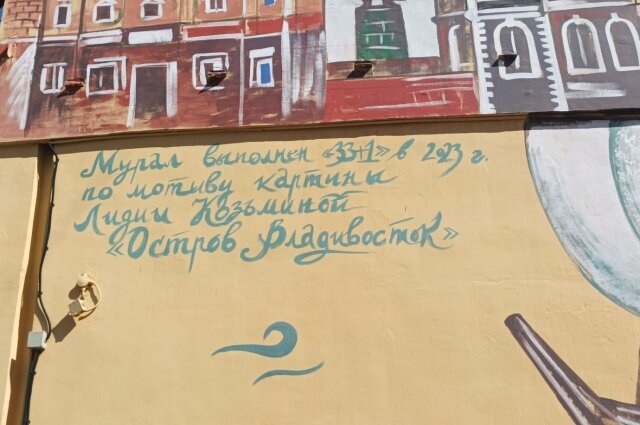 Мурал выполнен «33+1» в 2023 г.
по мотиву картины
Лидии Козьминой
«Остров Владивосток»